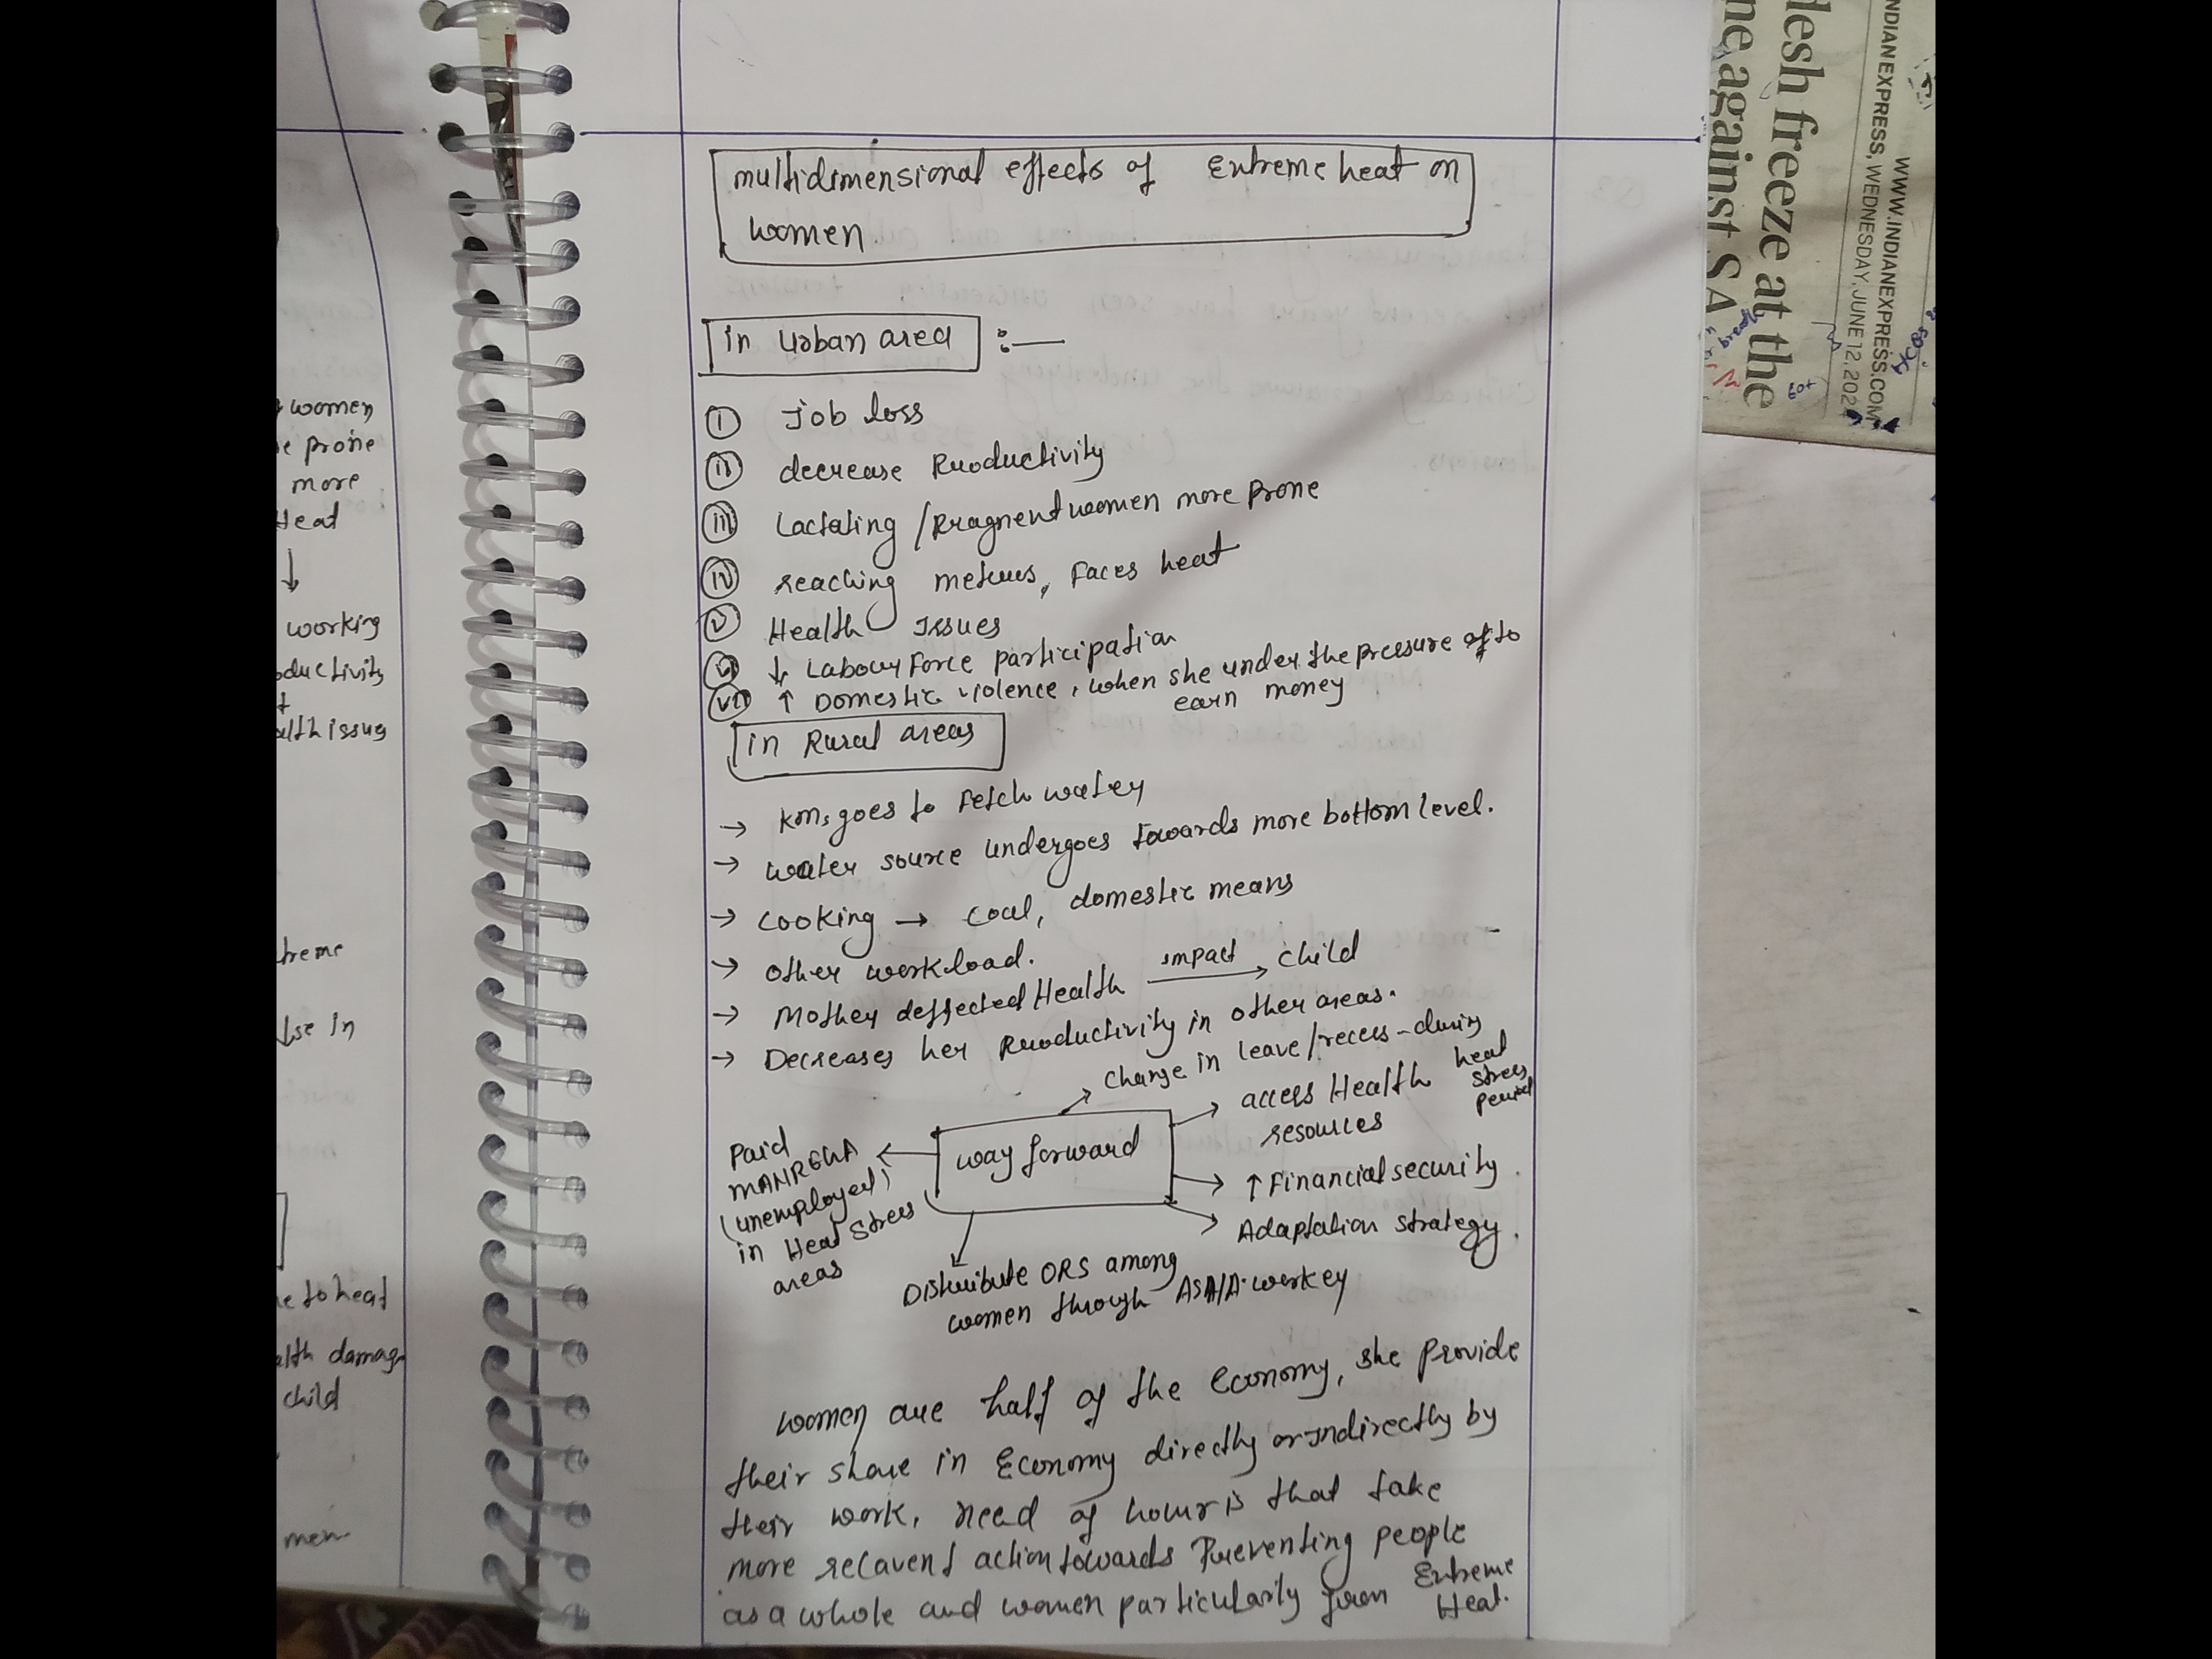 women
prone
more
Heat
working
issues
lse in
to heat
damag
child
men
multidimensional effects of Extreme heat on
women.
in Urban area :—
i Job loss
ii decrease Productivity
iii Lactating / Pragnent women more Prone
iv reaching metros, Faces heat
v Health Issues
vi ↓ Labour Force participation
vii ↑ Domestic violence, when she under the pressure of to
earn money
in Rural areas
→ Kms goes to Fetch water
→ water source undergoes towards more bottom level.
→ Cooking → coal, domestic means
→ other workload.
→ Mother deffected Health impact → child
→ Decreases her Productivity in other areas.
Change in leave/recess - during
heat
stress
period
access Health
resources
way forward
Paid
MANREGA
(unemployed)
in Heat Stress
areas
↑ Financial security.
Adaptation strategy.
Distribute ORS among
women through worker
women are half of the Economy, she Provide
their share in Economy directly or Indirectly by
their work, need of hour is that take
more relavent action towards Preventing people
as a whole and women particularly from Extreme
Heat.
desh freeze at the
ne against SA
WWW.INDIANEXPRESS.COM
INDIAN EXPRESS, WEDNESDAY, JUNE 12, 202